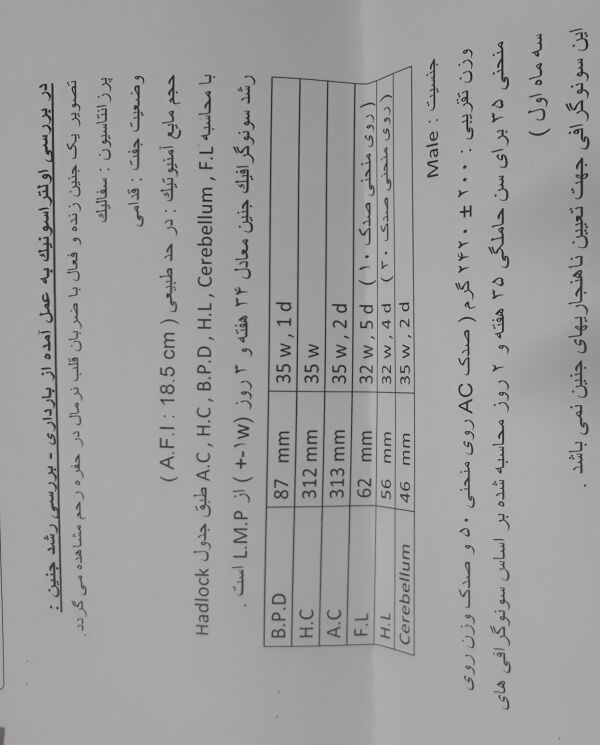 در بررسی اولتراسونیک به عمل آمده از بارداری - بررسی رشد جنین :
تصویر یک جنین زنده و فعال با ضربان قلب نرمال در حفره رحم مشاهده می گردد.
پرزانتاسیون : سفالیک
وضعیت جفت : قدامی
حجم مایع آمنیوتیک : در حد طبیعی ( A.F.I : 18.5 cm )
با محاسبه A.C , H.C , B.P.D , H.L , Cerebellum , F.L طبق جدول Hadlock
رشد سونوگرافیک جنین معادل ۳۴ هفته و ۳ روز (+-۱W ) از L.M.P است .
B.P.D 87 mm 35 w , 1 d
H.C 312 mm 35 w
A.C 313 mm 35 w , 2 d
F.L 62 mm 32 w , 5 d ( روی منحنی صدک ۱۰ )
H.L 56 mm 32 w , 4 d ( روی منحنی صدک ۲۰ )
Cerebellum 46 mm 35 w , 2 d
جنسیت : Male
وزن تقریبی : ۲۰۰ ± ۲۴۲۰ گرم ( صدک AC روی منحنی ۵۰ و صدک وزن روی
منحنی ۳۵ برای سن حاملگی ۳۵ هفته و ۲ روز محاسبه شده بر اساس سونوگرافی های
سه ماه اول )
این سونوگرافی جهت تعیین ناهنجاریهای جنین نمی باشد .